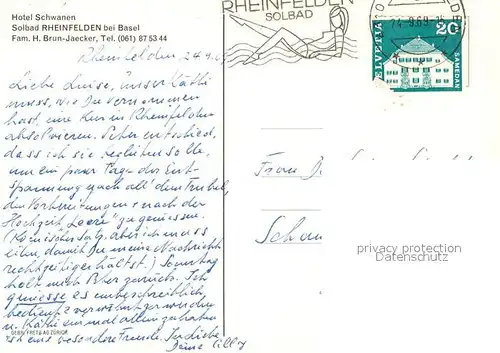 Hotel Schwanen
Solbad RHEINFELDEN bei Basel
Fam. H. Brun-Jaecker, Tel. (061) 87 53 44
RHEINFELDEN
SOLBAD
24.-9.69
HELVETIA
20
SAMEDAN
Rheinfelden 24.9.69
Liebe Luise, unser Käthi
muss, wie Du vernommen
hast, eine Kur in Rheinfelden
absolvieren. Peter entschied,
dass ich sie begleiten solle,
um ein paar Tage der Ent-
spannung nach all' dem Trubel,
den Vorbereitungen & nach der
Hochzeit, "Leere" zu geniessen.
(Komischer Satz, aber ich muss
eilen, damit Du meine Nachricht
rechtzeitig erhältst.) Sonntag
holt mich Peter zurück. Ich
geniesse es unbeschreiblich,
bedient & verwöhnt zu werden
u. Käthi einmal allein zu haben
ist eine besondere Freude. In Liebe
Deine Cilly
Frau
Schan
privacy protection
Datenschutz
GEBR. FRETZ AG ZÜRICH